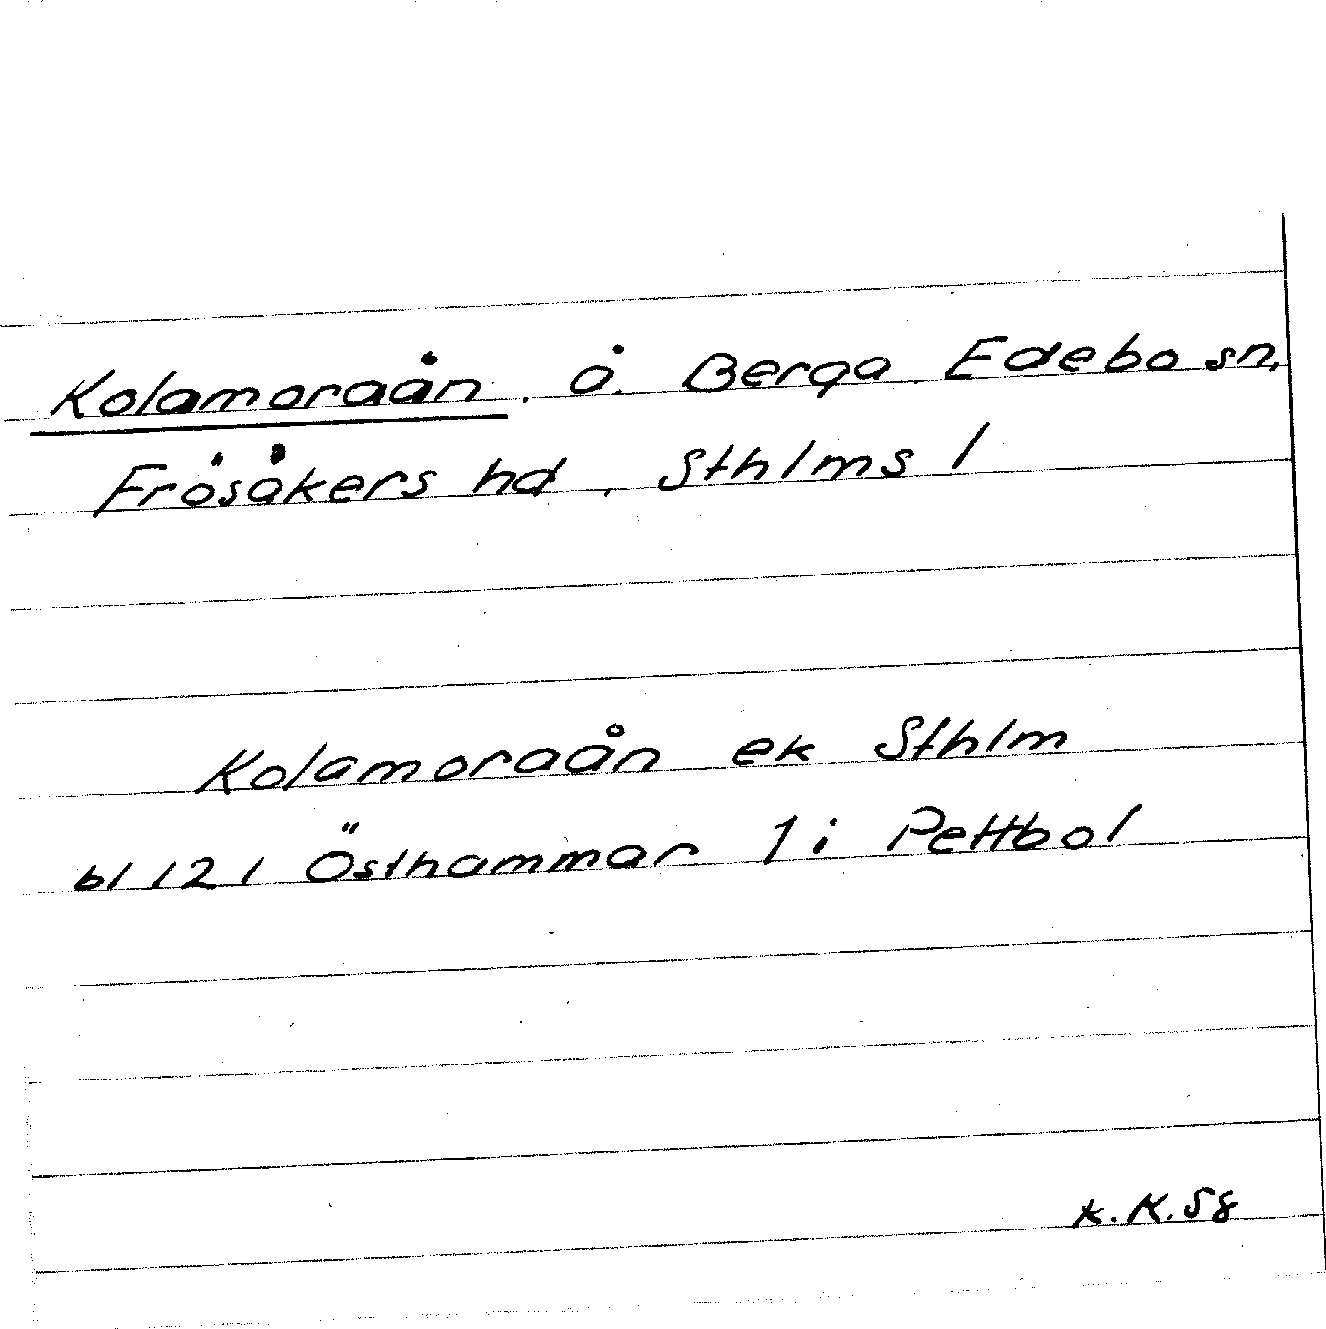 Kolamoraån. å. Berga Edebo sn,
Frösåkers hd, Sthlms l
Kolamoraån ek Sthlm
bl 121 Östhammar 1 i Pettbol
K.K.58